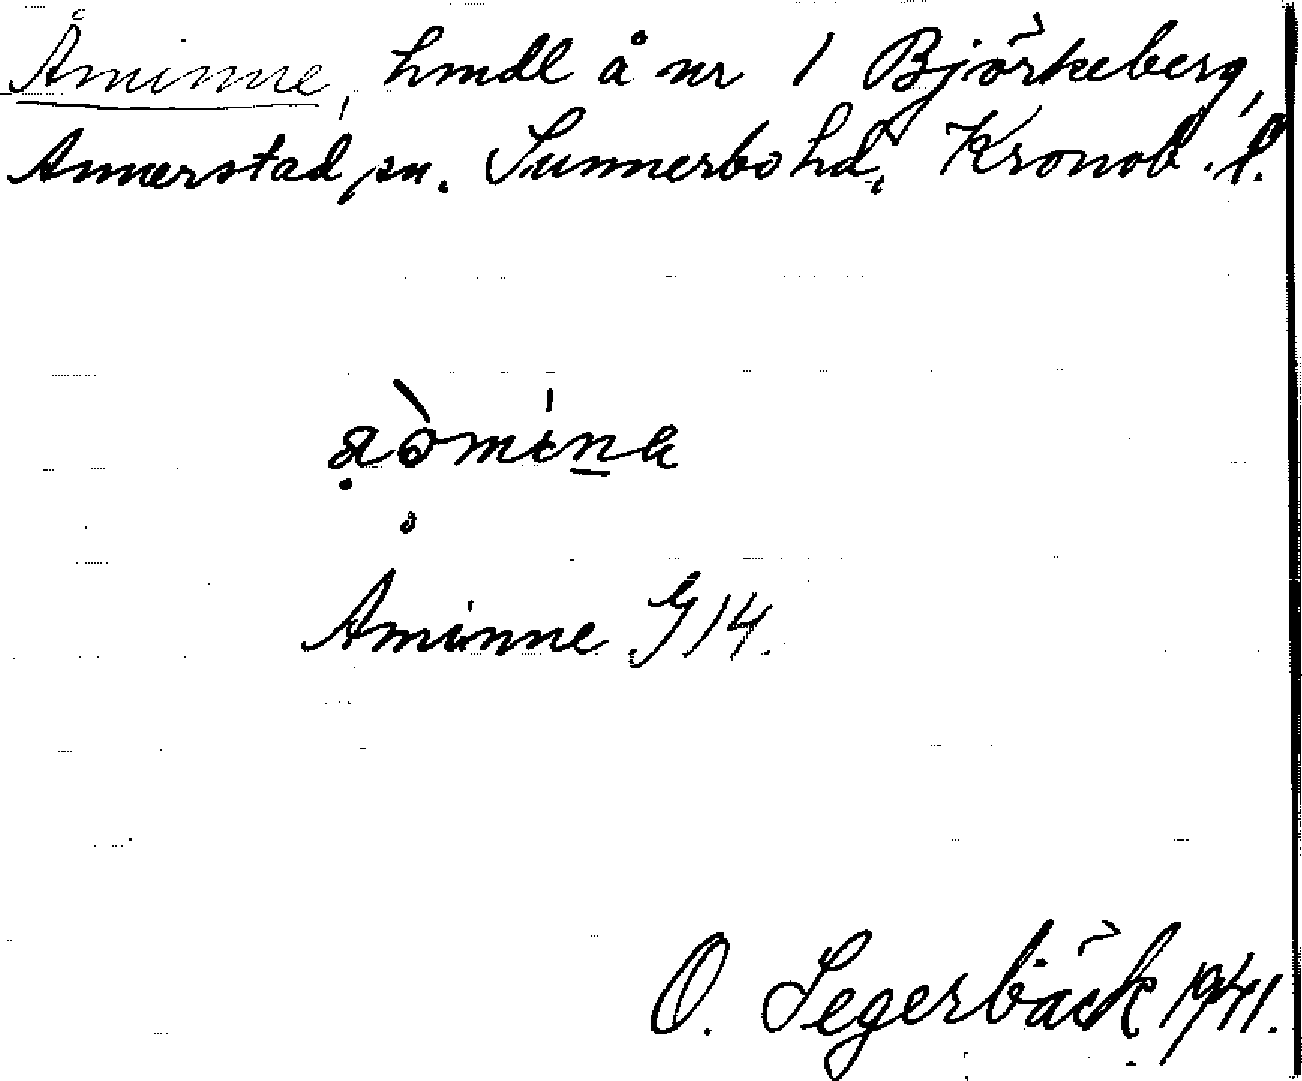 Åminne, hmdl å nr 1 Björkeberg,
Annerstad sn. Sunnerbo hd, Kronob. l.
Åminne G 14.
O. Segerbäck 1941.